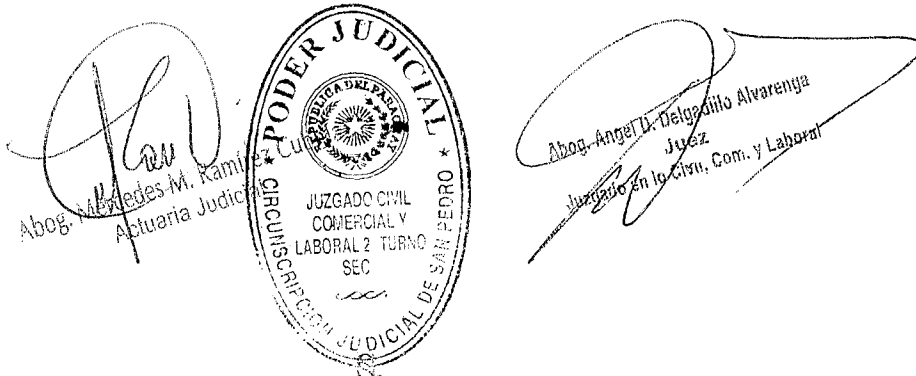 Abog. Mercedes M. Ramírez
Actuaria Judicial
PODER JUDICIAL
REPUBLICA DEL PARAGUAY
JUZGADO CIVIL
COMERCIAL Y
LABORAL 2 TURNO
SEC
CIRCUNSCRIPCION JUDICIAL DE SAN PEDRO
Abog. Angel D. Delgadillo Alvarenga
Juez
Juzgado en lo Civil, Com. y Laboral